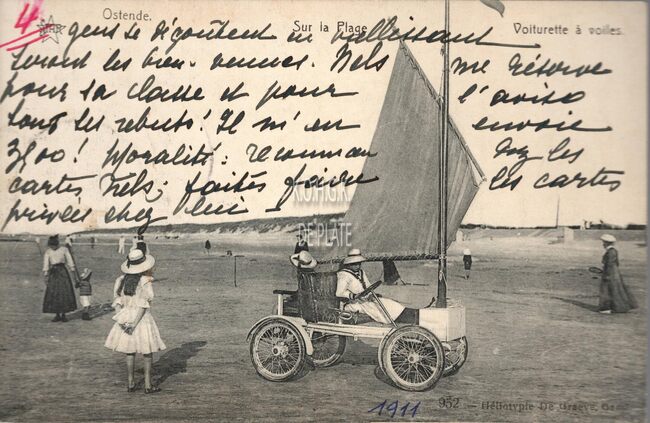 4
Ostende.
Sur la Plage
Voiturette à voiles.
gens se dégoûtent en vieillissant
seront les bien-venues. Nels me réserve
pour sa classe et pour l'aviso
tous ses rebuts! Il m'en envoie
3500! Moralité: recomman dez les
cartes Nels; faites faire les cartes
privées chez lui -
KOPIGIK
DE PLATE
1911
952 - Héliotypie De Graeve, Gand